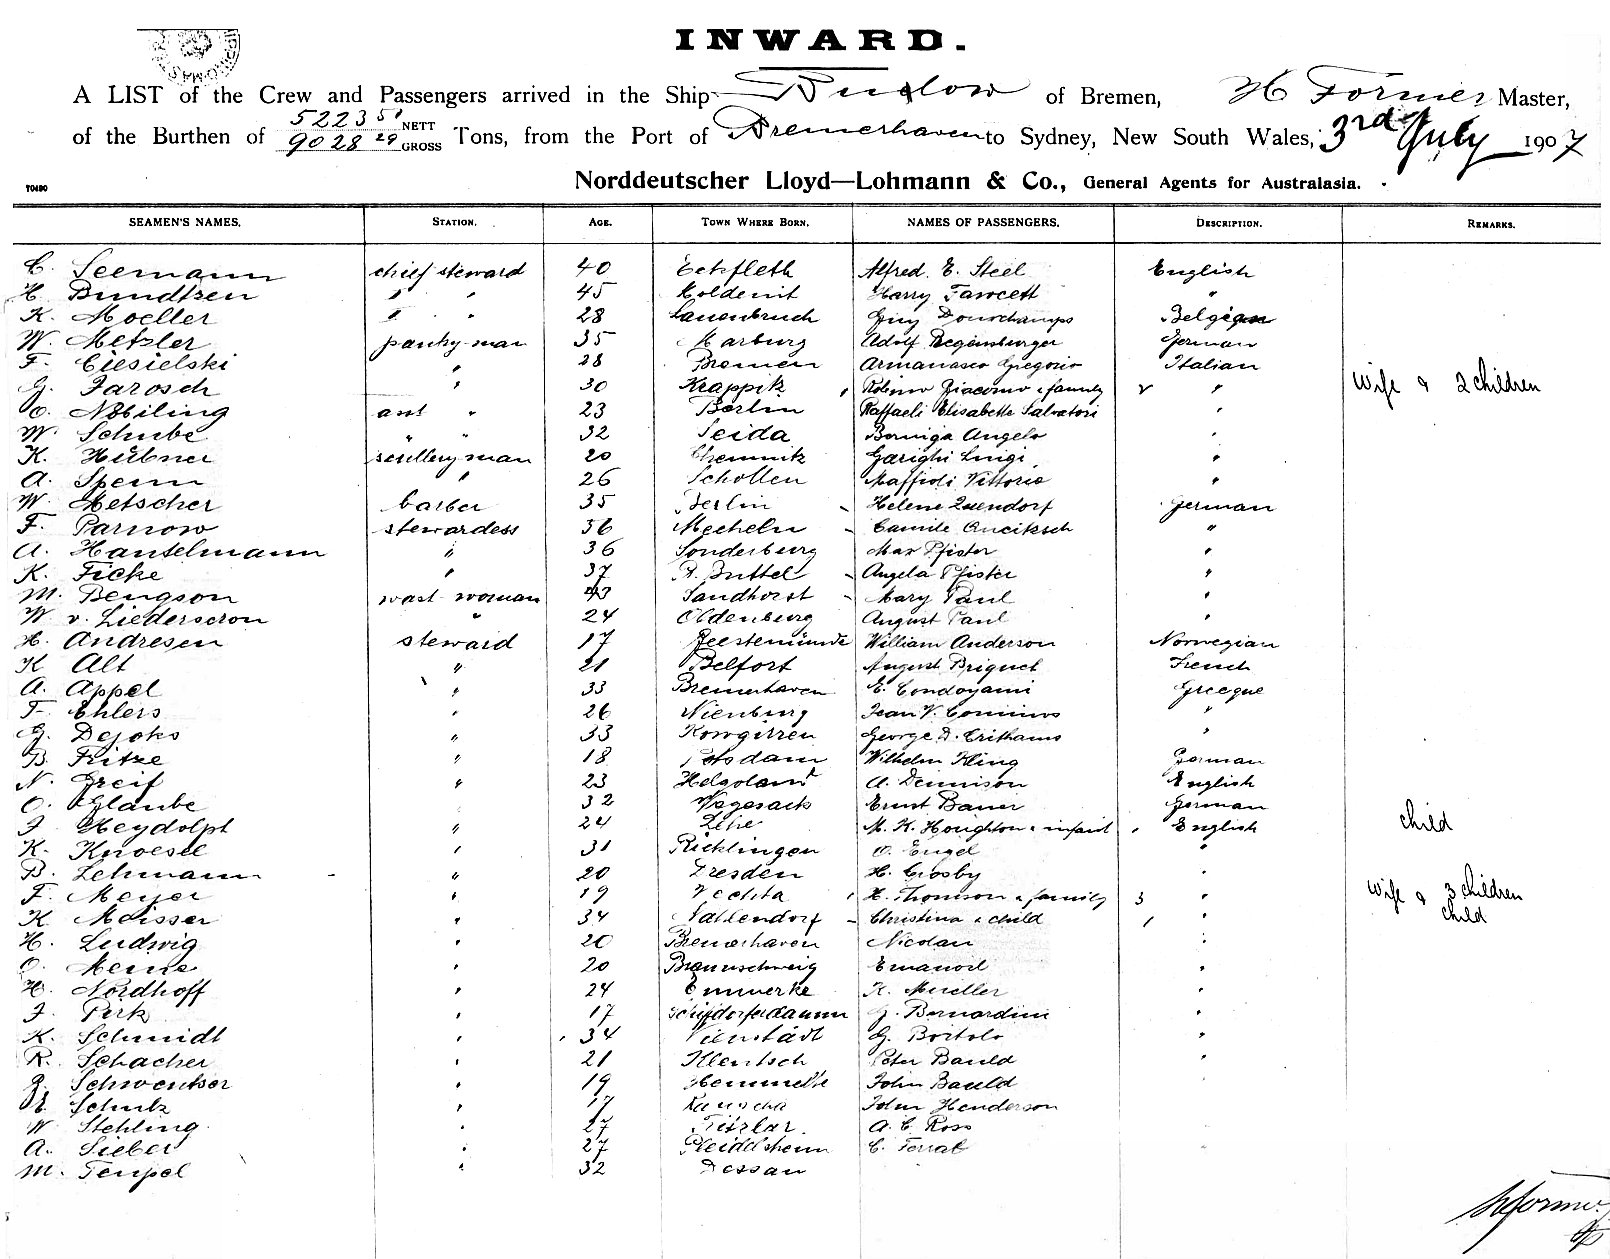 INWARD.
A LIST of the Crew and Passengers arrived in the Ship Bülow of Bremen, H Formes Master,
of the Burthen of 5223 51 NETT 9028 29 GROSS Tons, from the Port of Bremerhaven to Sydney, New South Wales, 3rd July 1907
T0490
Norddeutscher Lloyd—Lohmann & Co., General Agents for Australasia.
SEAMEN'S NAMES. STATION. AGE. TOWN WHERE BORN. NAMES OF PASSENGERS. DESCRIPTION. REMARKS.
C. Seemann chief steward 40 Alfred. E. Steel English
H. Bundtzen " " 45 Moldenit Harry Fawcett "
K. Moeller " " 28 Lauenbruch Guy Belgian
W. Metzler pantry-man 35 Marburg Adolf Regensburger German
F. Ciesielski " 28 Bremen Armanasco Gregorio Italian
G. Jarosch " 30 Krappitz Giacomo & family 2 " Wife & 2 children
O. Nobiling asst " 23 Berlin Raffaeli Elisabetta Salvatori "
W. Schube " " 32 Seida Borniga Angelo "
K. Hübner scullery man 20 Chemnitz Garighi Luigi "
A. Sperm " 26 Schollen Maffioli Vittorio "
W. Metscher barber 35 Berlin Helene German
F. Parnow stewardess 36 Mecheln Camile "
A. Hantelmann " 36 Sonderburg Max Pfister "
K. Ficke " 37 R. Büttel Angela Pfister "
M. Bengson wast woman 43 Sandhorst Mary Paul "
W v. Liederscron " 24 Oldenburg August Paul "
H. Andresen steward 17 Geestemünde William Anderson Norwegian
K Alt " 21 Belfort August Briquet French
A. Appel " 33 Bremerhaven E. Condoyami Grecque
F. Ehlers " 26 Nienburg Jean V. Cominos "
G. Dejoks " 33 Kowgirren George D. Crithams "
B. Fritze " 18 Potsdam Wilhelm Kling German
N. Greif " 23 Helgoland A. Dennison English
O. Glaube " 32 Vegesack Ernst Bauer German
J. Heydolph " 24 Lehe M. K. Houghton & infant 1 English child
K. Knoesel " 31 Ricklingen O. Engel "
B. Lehmann " 20 Dresden H. Crosby "
F. Meyer " 19 Vechta H. Thomson & family 3 " Wife & 3 children
K Meisser " 34 Vallendorf Christina & child 1 " child
H. Ludwig " 20 Bremerhaven Nicolau "
O. Meins " 20 Braunschweig Emanoil "
H. Nordhoff " 24 Emmerke K. Mueller "
J. Pirk " 17 Schiffdorferdamm G. Bernardini "
K. Schmidt " 34 Vienstädt G. Bortolo "
R. Schacher " 21 Klentsch Peter Bauld "
G. Schwentser " 19 Hemmelte John Bauld
E. Schutz " 17 Rauscha John Henderson
W Stehling " 27 A. C. Ross
A. Sieber " 27 Pleidelsheim C. Ferrat
M. Tempel " 32 Dessau
HFormes